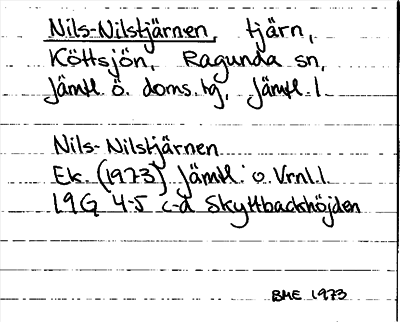 Nils-Nilstjärnen, tjärn,
Köttsjön, Ragunda sn,
Jämtl. ö. doms. hg, Jämtl. l.
Nils-Nilstjärnen
Ek. (1973) Jämtl. o Vrnl.l.
19G 4-5 c-d Skyttbackhöjden
BME 1973